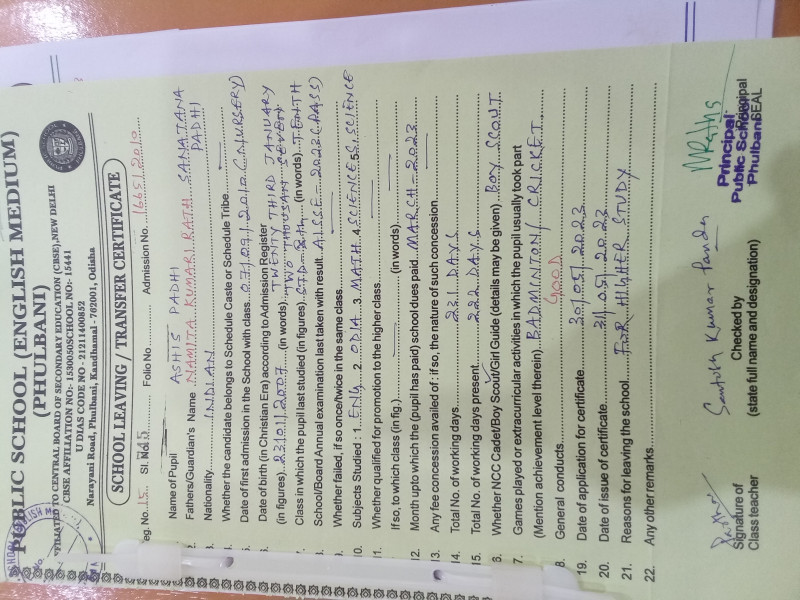 PUBLIC SCHOOL (ENGLISH MEDIUM)
(PHULBANI)
AFFILIATED TO CENTRAL BOARD OF SECONDARY EDUCATION (CBSE),NEW DELHI
CBSE AFFILIATION NO:- 1530050SCHOOL NO:- 15441
U DIAS CODE NO - 21211400852
Narayani Road, Phulbani, Kandhamal - 762001, Odisha
SCHOOL LEAVING / TRANSFER CERTIFICATE
eg. No. 15 Sl. No. 15 Folio No Admission No. 1665/2010
Name of Pupil ASHIS PADHI
2. Fathers/Guardian's Name NAMITA KUMARI RATHI SANATANA PADHI
Nationality INDIAN
Whether the candidate belongs to Schedule Caste or Schedule Tribe
Date of first admission in the School with class 07/07/2010 (NURSERY)
Date of birth (in Christian Era) according to Admission Register
(in figures) 23/01/2007 (in words) TWENTY THIRD JANUARY TWO THOUSAN SEVEN
Class in which the pupil last studied (in figures) STD - Xth (in words) TENTH
School/Board Annual examination last taken with result AISSE - 2023 (PASS)
Whether failed, if so once/twice in the same class
10. Subjects Studied : 1. ENG 2. ODIA 3. MATH 4. SCIENCE 5. S. SCIENCE
11. Whether qualified for promotion to the higher class.
If so, to which class (in fig.) (in words)
12. Month upto which the (pupil has paid) school dues paid MARCH - 2023
13. Any fee concession availed of : if so, the nature of such concession
14. Total No. of working days 231 DAYS
15. Total No. of working days present 222 DAYS
6. Whether NCC Cadet/Boy Scout/Girl Guide (details may be given) BOY SCOUT
7. Games played or extracurricular activities in which the pupil usually took part
(Mention achievement level therein) BADMINTON/ CRICKET
8. General conducts GOOD
19. Date of application for certificate 30/05/2023
20. Date of issue of certificate 31/05/2023
21. Reasons for leaving the school FOR HIGHER STUDY
22. Any other remarks
Signature of
Class teacher
Santosh Kumar Panda
Checked by
(state full name and designation)
Principal
SEAL
Principal
Public School
Phulbani